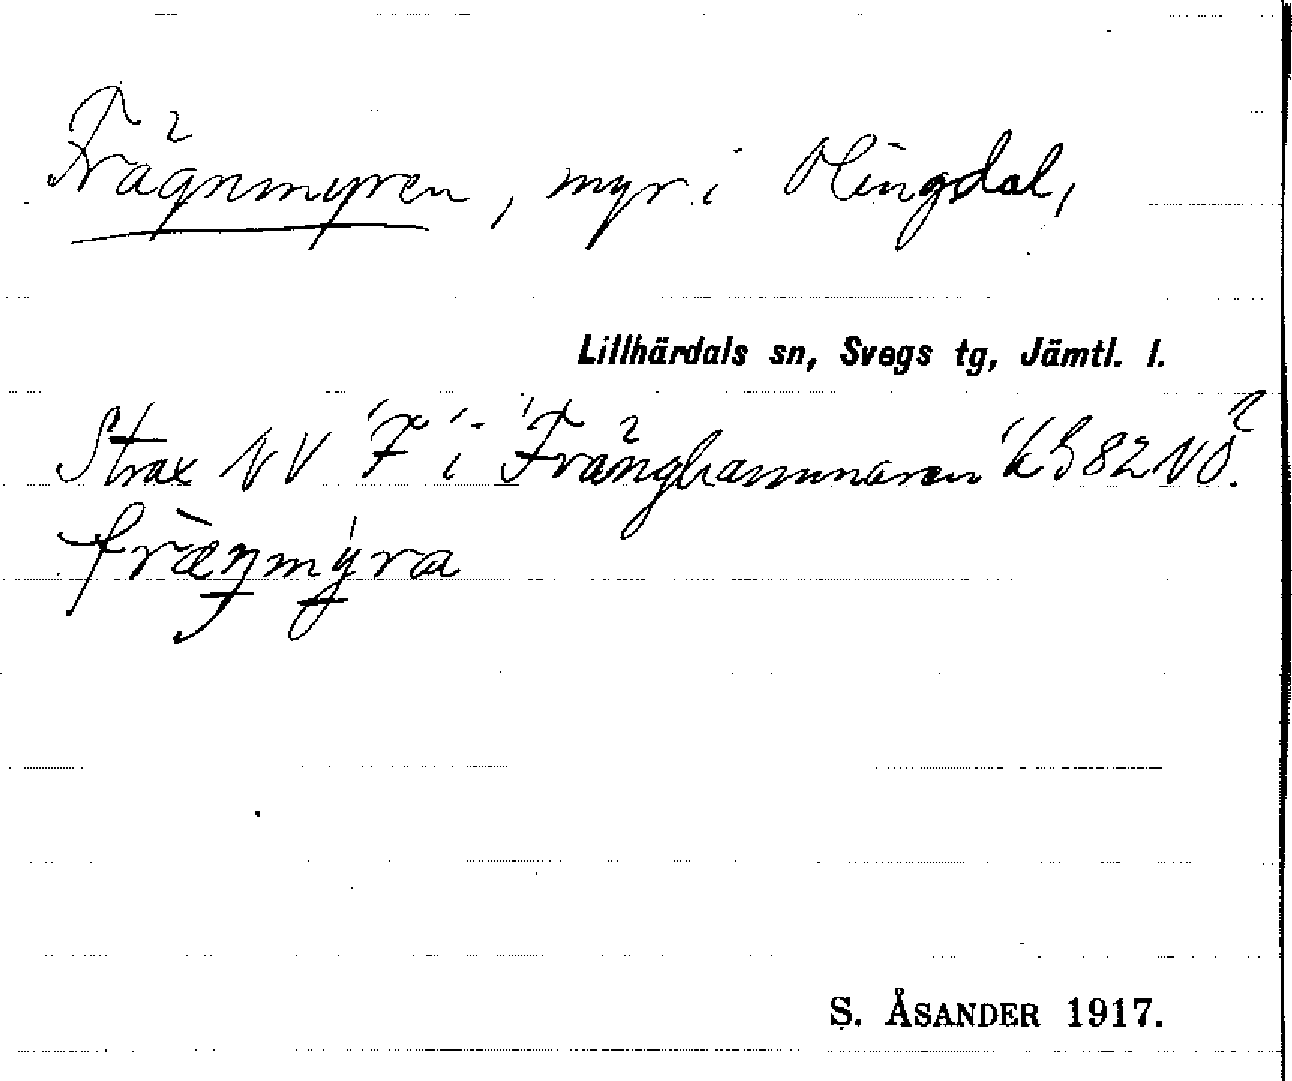 Frägnmyren, myr i Olingdal,
Lillhärdals sn, Svegs tg, Jämtl. l.
Strax NV 'F' i 'Fränghammaren' kb 82 NÖ.
fræŋmyra
S. ÅSANDER 1917.